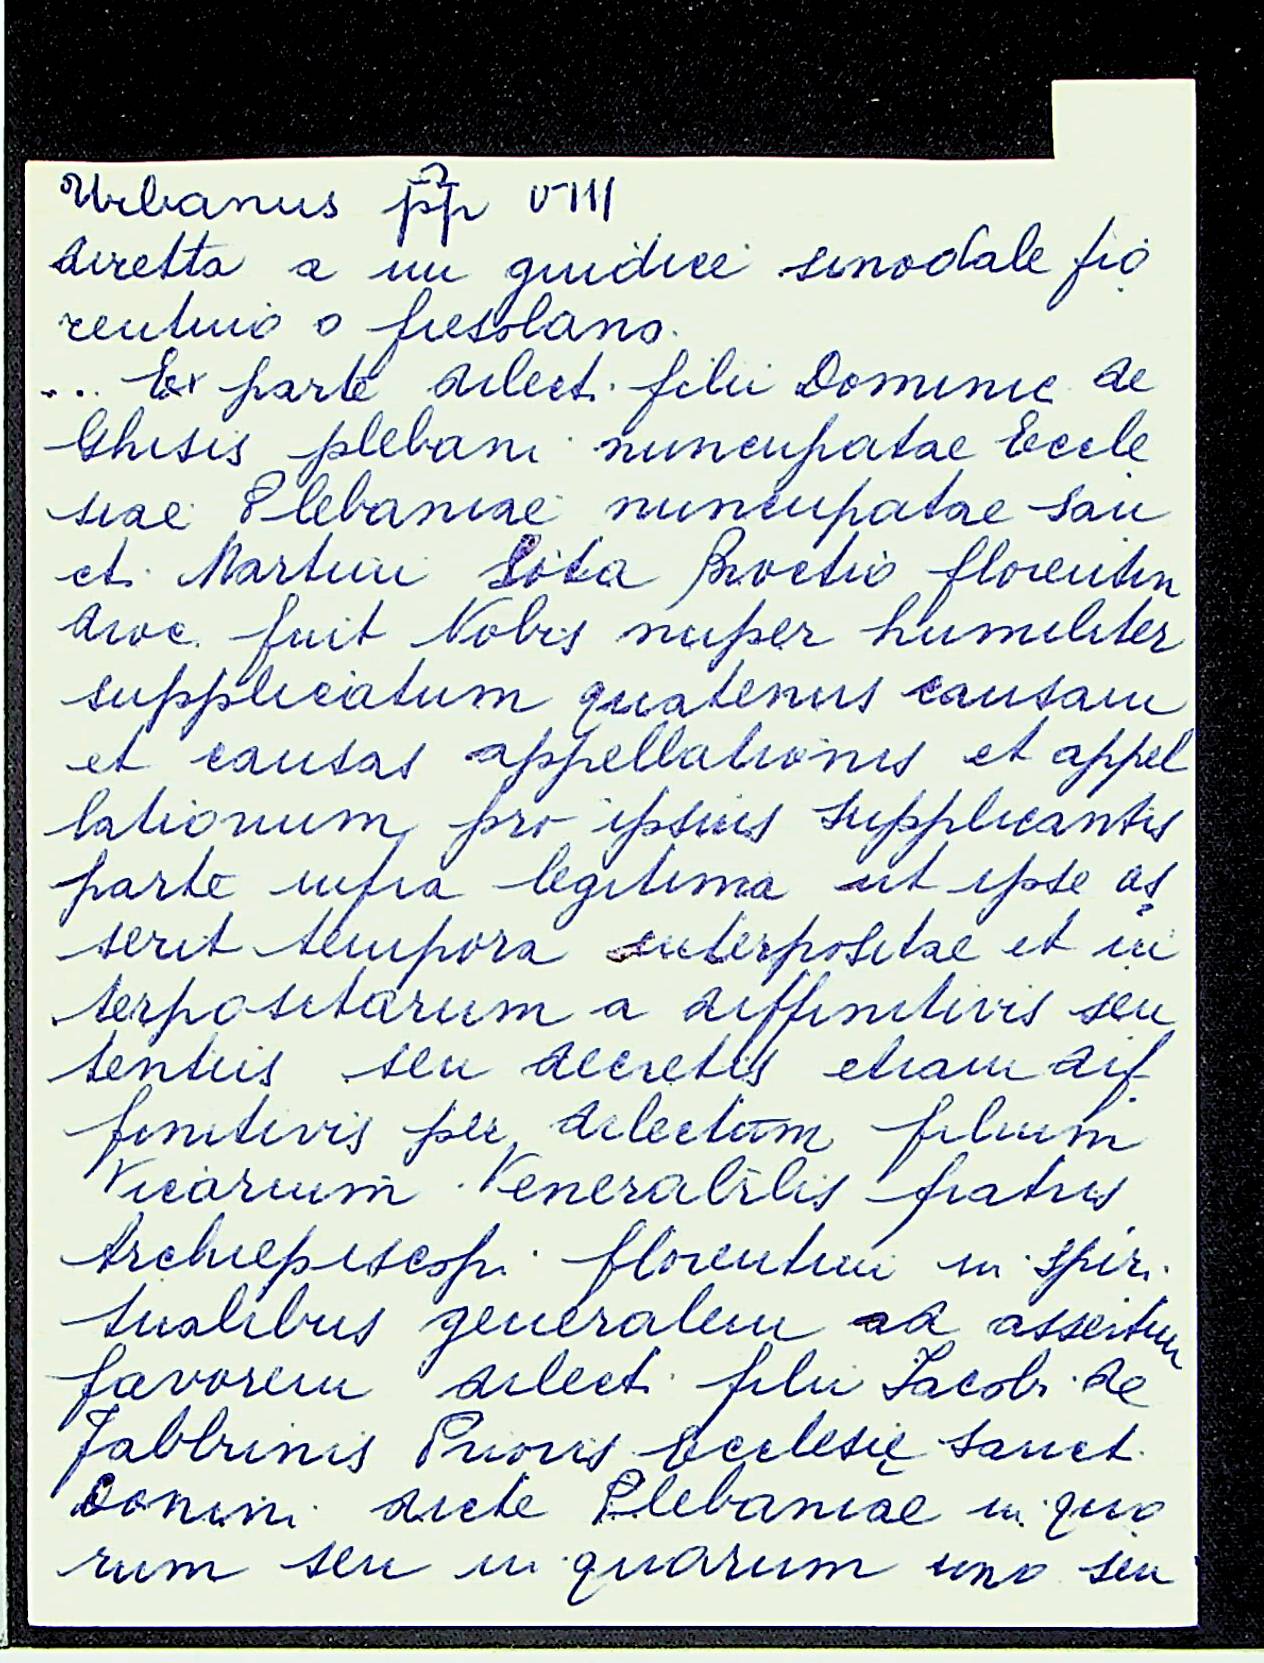 Urbanus pp VIII
diretta a un giudice sinodale fio
rentino o fiesolano.
... Ex parte dilect. filii Dominic de
Ghisis plebani nuncupatae Eccle
siae Plebaniae nuncupatae San
ct. Martini florentin
dioc. fuit Nobis nuper humiliter
supplicatum quatenus causam
et causas appellationis et appel
lationum pro ipsius supplicantis
parte infra legitima ut ipse as
serit tempora interpositae et in
terpositarum a diffinitivis sen
tentiis seu decretis etiam dif
finitivis per dilectum filium
Vicarium Venerabilis fratris
Archiepiscopi florentini in spiri
tualibus generalem ad assertum
favorem dilect. filii Jacobi de
Fabbrinis Prioris Ecclesię Sanct.
Donini dicte Plebaniae in quo
rum seu in quarum uno seu